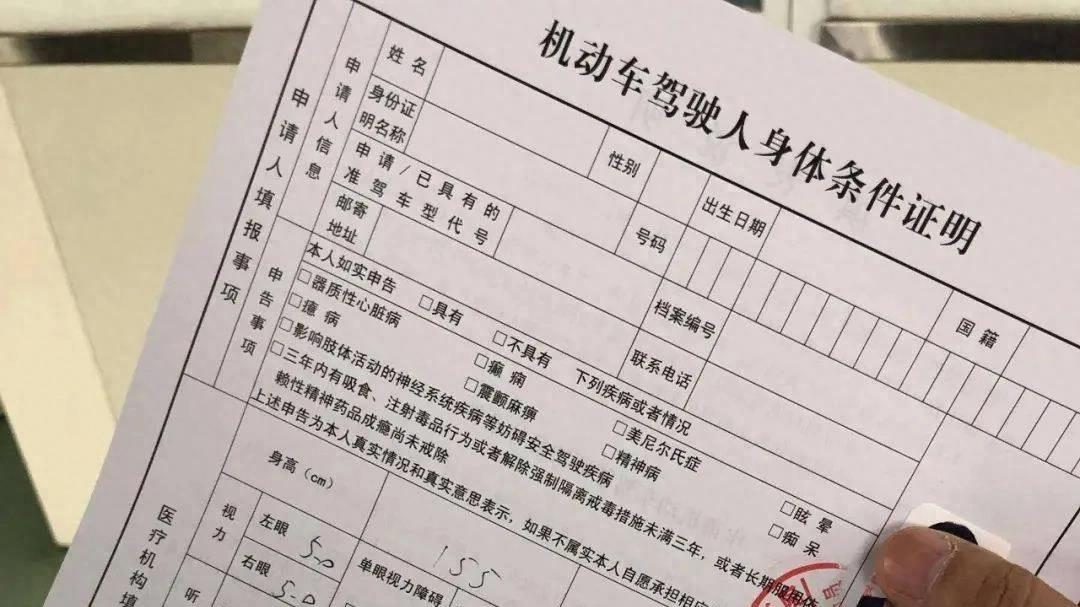 机动车驾驶人身体条件证明
申请人填报事项
申请人信息
姓名
性别
出生日期
国籍
身份证明名称
号码
申请/已具有的准驾车型代号
档案编号
邮寄地址
联系电话
申告事项
本人如实申告 □具有 □不具有 下列疾病或者情况
□器质性心脏病 □癫痫 □美尼尔氏症 □眩晕
□癔病 □震颤麻痹 □精神病 □痴呆
□影响肢体活动的神经系统疾病等妨碍安全驾驶疾病
□三年内有吸食、注射毒品行为或者解除强制隔离戒毒措施未满三年，或者长期服用依
赖性精神药品成瘾尚未戒除
上述申告为本人真实情况和真实意思表示，如果不属实本人自愿承担相应
医疗机构填
身高(cm)
155
视力
左眼
5.0
右眼
5.0
单眼视力障碍
听